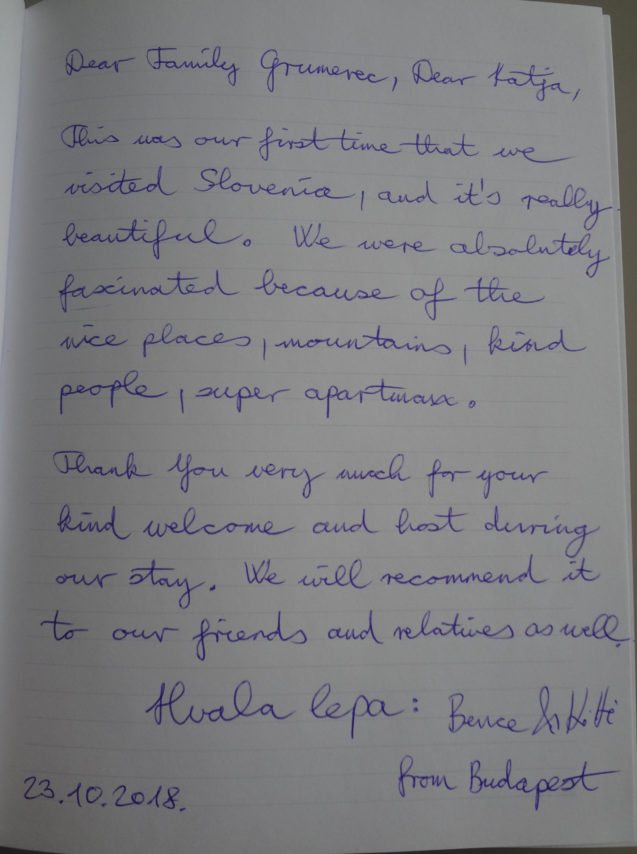 Dear Family Grumerec, Dear Katja,
This was our first time that we
visited Slovenia, and it's really
beautiful. We were absolutely
fascinated because of the
nice places, mountains, kind
people, super apartmaxx.
Thank You very much for your
kind welcome and host during
our stay. We will recommend it
to our friends and relatives as well.
Hvala lepa: Bence & Kitti
from Budapest
23.10.2018.